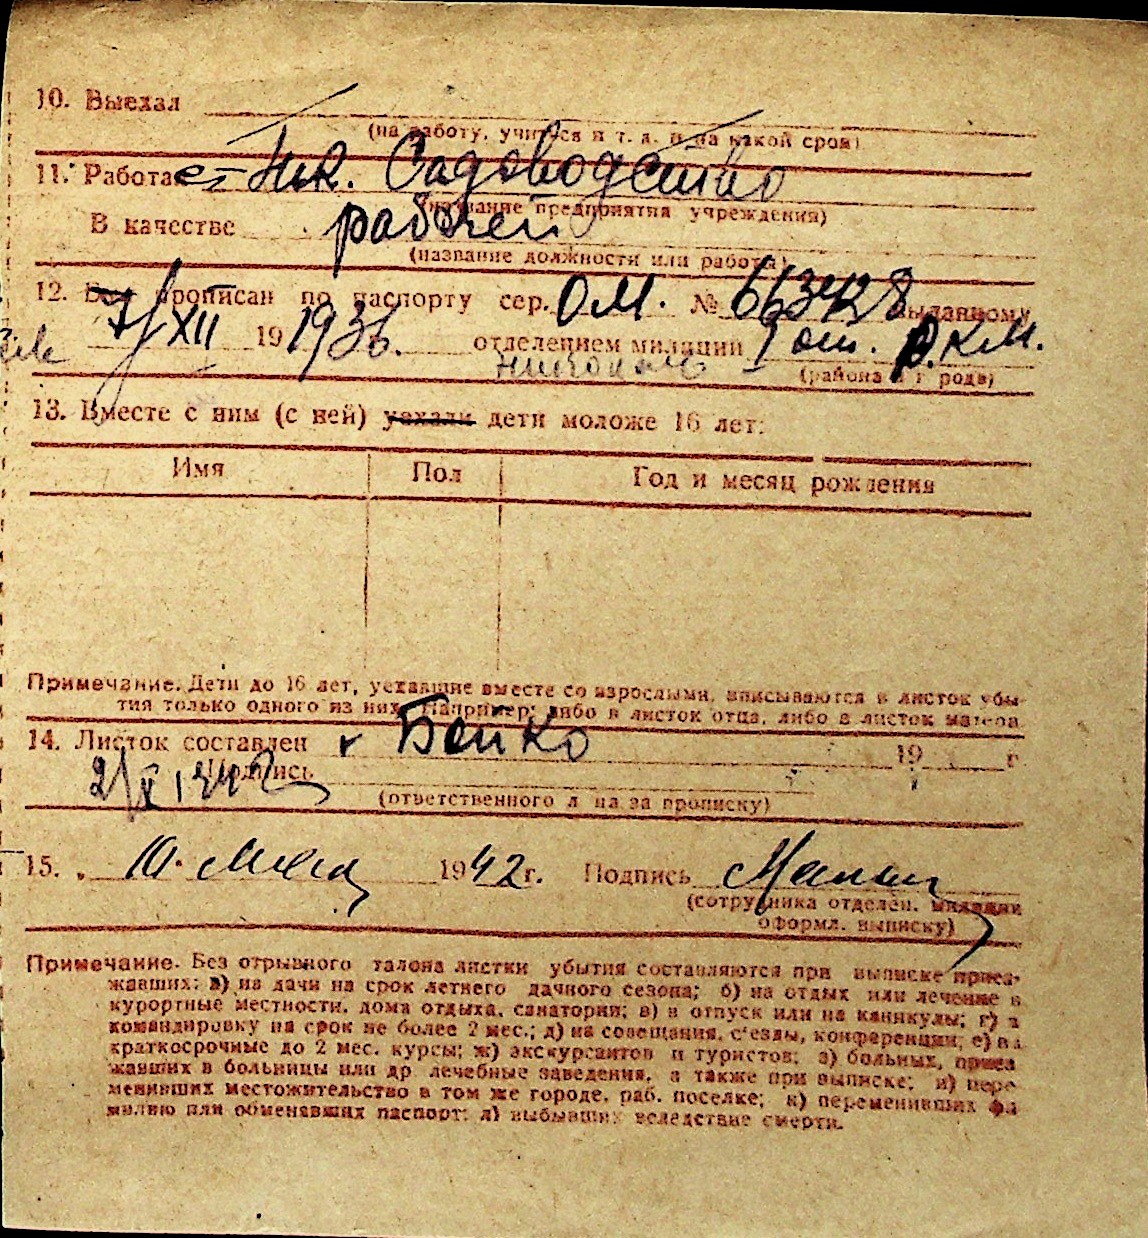 10. Выехал
(на работу, учиться и т. д. и на какой срок)
11. Работает Ник. Садоводство
(название предприятия учреждения)
В качестве рабочей
(название должности или работы)
12. Был прописан по паспорту сер. ОМ. № 663428 выданному
7/XII 19 1936. отделением милиции 1 от. Р.К.М.
(района и г рода)
13. Вместе с ним (с ней) уехали дети моложе 16 лет:
Имя Пол Год и месяц рождения
Примечание. Дети до 16 лет, уехавшие вместе со взрослыми, вписываются в листок убы-
тия только одного из них. Например: либо в листок отца, либо в листок матери
14. Листок составлен Бейко 19 г.
2/V 1942 Подпись
(ответственного л на за прописку)
15. „ 10. мая 1942 г. Подпись
(сотрудника отделен. милиции
оформл. выписку)
Примечание. Без отрывного талона листки убытия составляются при выписке приез-
жавших: а) на дачи на срок летнего дачного сезона; б) на отдых или лечение в
курортные местности, дома отдыха, санатории; в) в отпуск или на каникулы; г) в
командировку на срок не более 2 мес.; д) на совещания, с'езды, конференции; е) на
краткосрочные до 2 мес. курсы; ж) экскурсантов и туристов; з) больных, приез
жавших в больницы или др лечебные заведения, а также при выписке; и) пере-
менивших местожительство в том же городе, раб. поселке; к) переменивших фа
милию или обменявших паспорт; л) выбывших вследствие смерти.